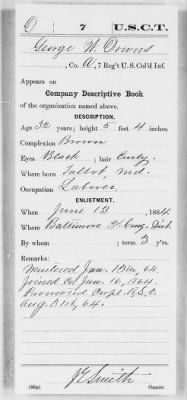 D 7 U.S.C.T.
George W. Downs
, Co. A, 7 Reg't U.S. Col'd Inf.
Appears on
Company Descriptive Book
of the organization named above.
DESCRIPTION.
Age 32 years; height 5 feet 4 inches.
Complexion Brown
Eyes Black ; hair Curly
Where born Talbot, Md.
Occupation Laborer
ENLISTMENT.
When June 13 , 1864.
Where Baltimore 3d Cong. Dist.
By whom ; term 3 y'rs.
Remarks:
Mustered Jan. 13th, 64.
Joined Co. Jan. 16, 1864.
Promoted Corpl. R.S.O.
Aug. 31st, 64.
J E Smith
Copyist.